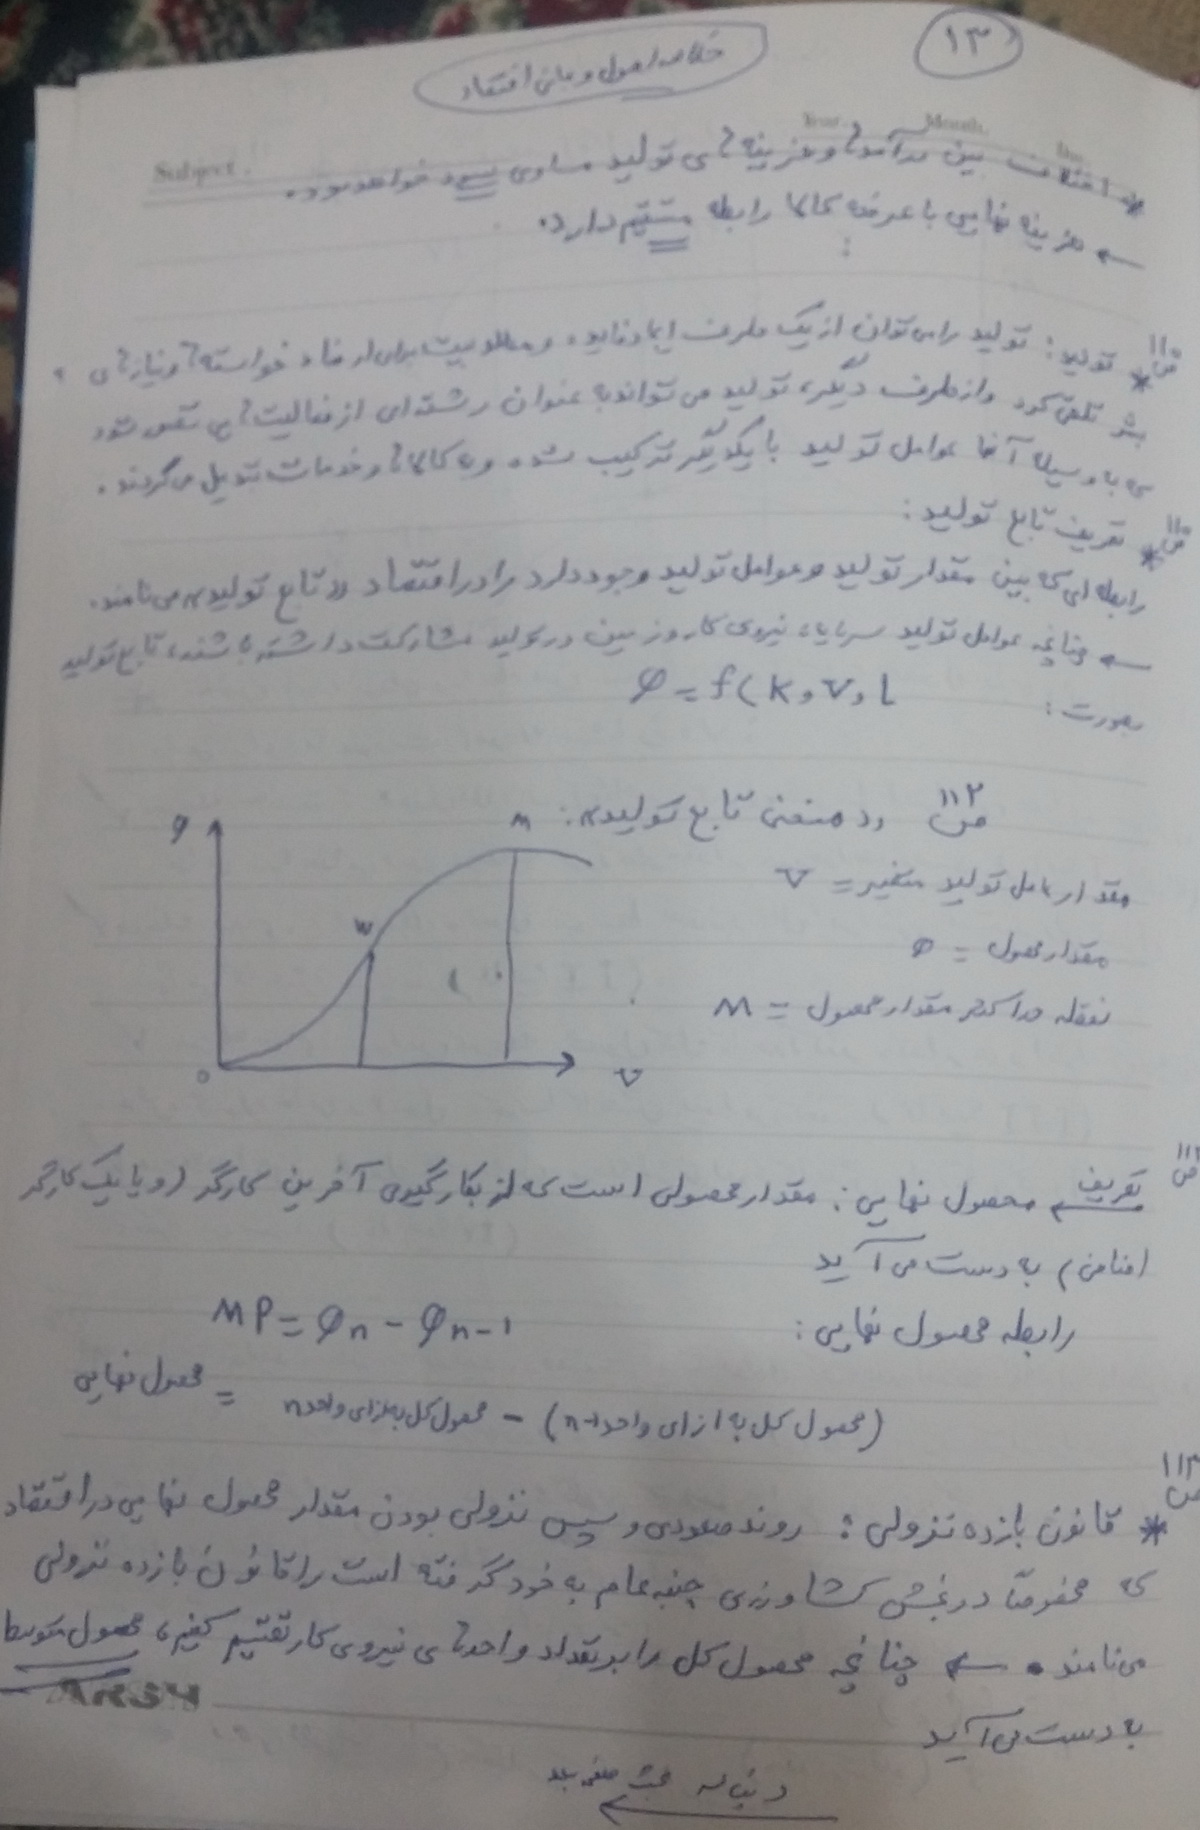 ۱۳
خلاصه اصول و مبانی اقتصاد
Year. Month. Day.
Subject.
* اختلاف بین درآمدها و هزینه‌های تولید مساوی سود خواهد بود.
← هزینه نهایی با عرضه کالا رابطه مستقیم دارد.
ص ۱۱۰ * تولید: تولید را می‌توان از یک طرف ایجاد فایده و مطلوبیت برای ارضاء خواسته‌ها و نیازهای
بشر تلقی کرد و از طرف دیگر، تولید می‌تواند به عنوان رشته‌ای از فعالیت‌هایی تلقی شود
که به وسیله آنها عوامل تولید با یکدیگر ترکیب شده و به کالاها و خدمات تبدیل می‌گردند.
ص ۱۱۰ * تعریف تابع تولید:
رابطه‌ای که بین مقدار تولید و عوامل تولید وجود دارد را در اقتصاد «تابع تولید» می‌نامند.
← چنانچه عوامل تولید سرمایه، نیروی کار و زمین در تولید مشارکت داشته باشند، تابع تولید
بصورت: φ = f(K, V, L
ص ۱۱۲ «منحنی تابع تولید»:
φ
M
W
O
V
مقدار عامل تولید متغیر = V
مقدار محصول = φ
نقطه حداکثر مقدار محصول = M
ص تعریف محصول نهایی: مقدار محصولی است که از بکارگیری آخرین کارگر (و یا یک کارگر
اضافی) به دست می‌آید
رابطه محصول نهایی: MP = φn - φn-1
محصول نهایی = محصول کل به ازای واحد n - (محصول کل به ازای واحد n-1)
ص ۱۱۳
* قانون بازده نزولی: روند صعودی و سپس نزولی بودن مقدار محصول نهایی در اقتصاد
که مخصوصاً در بخش کشاورزی جنبه عام به خود گرفته است را قانون بازده نزولی
می‌نامند. ← چنانچه محصول کل را بر تعداد واحدهای نیروی کار تقسیم کنیم، محصول متوسط
به دست می‌آید
دنباله بحث صفحه بعد